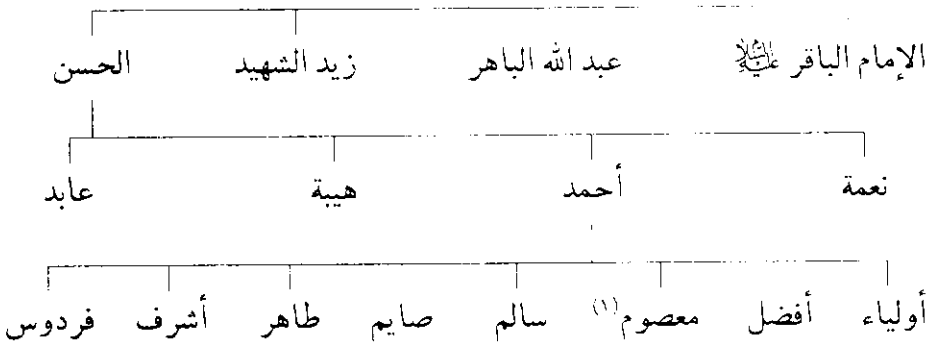 الإمام الباقر عليه السلام عبد الله الباهر زيد الشهيد الحسن
نعمة أحمد هيبة عابد
أولياء أفضل معصوم(١) سالم صايم طاهر أشرف فردوس